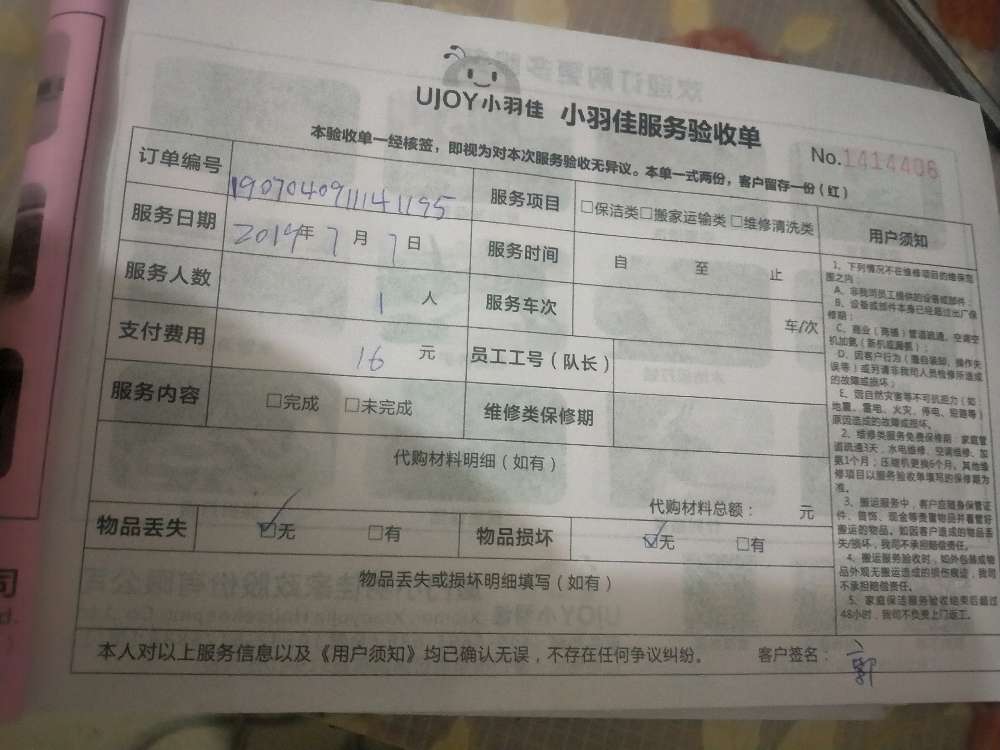 UJOY小羽佳 小羽佳服务验收单
No.1414406
本验收单一经核签，即视为对本次服务验收无异议。本单一式两份，客户留存一份（红）
订单编号 1907040911141195 服务项目 □保洁类□搬家运输类□维修清洗类
服务日期 2019年7月7日 服务时间 自 至 止
服务人数 1人 服务车次 车/次
支付费用 16元 员工工号（队长）
服务内容 □完成 □未完成 维修类保修期
代购材料明细（如有）
代购材料总额： 元
物品丢失 ☑无 □有 物品损坏 ☑无 □有
物品丢失或损坏明细填写（如有）
本人对以上服务信息以及《用户须知》均已确认无误，不存在任何争议纠纷。 客户签名： 郭
用户须知
1、下列情况不在维修项目的维保范
围之内：
A、非我司员工提供的设备或部件；
B、设备或部件本身已经超过出厂保
修期；
C、商业（商铺）管道疏通、空调空
机加氨（新机或漏氨）；
D、因客户行为（擅自装卸、操作失
误等）或另请非我司人员检修所造成
的故障或损坏；
E、因自然灾害等不可抗拒力（如：
地震、雷电、火灾、停电、短路等）
原因造成的故障或损坏。
2、维修类服务免费保修期：家庭管
道疏通3天，水电维修、空调维修、加
氨1个月；压缩机更换6个月，其他维
修项目以服务验收单填写的保修期为
准。
3、搬运服务中，客户应随身保管证
件、首饰、现金等贵重物品并看管好
搬运的物品。如因客户造成的物品丢
失/损坏，我司不承担赔偿责任。
4、搬运服务验收时，如外包装或物
品外观无搬运造成的损伤痕迹，我司
不承担赔偿责任。
5、家庭保洁服务验收结束后超过
48小时，我司不负责上门返工。
司
d.